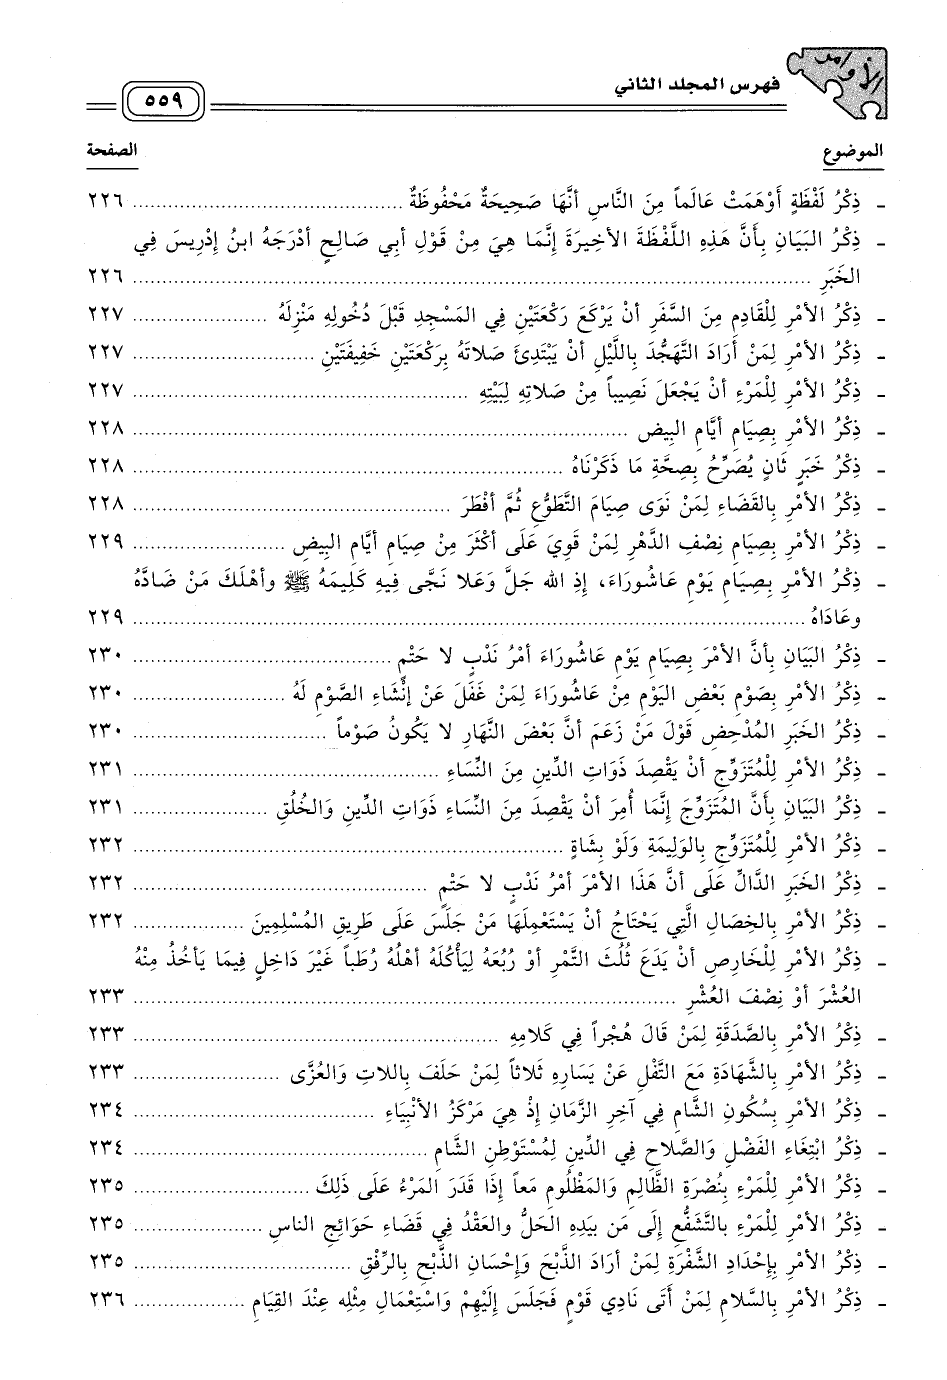 الأوامر
فهرس المجلد الثاني
٥٥٩
الموضوع الصفحة
- ذِكْرُ لَفْظَةٍ أَوْهَمَتْ عَالَماً مِنَ النَّاسِ أنَّهَا صَحِيحَةٌ مَحْفُوظَةٌ ........ ٢٢٦
- ذِكْرُ البَيَانِ بِأَنَّ هَذِهِ اللَّفْظَةَ الأخِيرَةَ إنَّمَا هِيَ مِنْ قَوْلِ أبي صَالِحٍ أدْرَجَهُ ابنُ إدْرِيسَ فِي
الخَبَرِ ........ ٢٢٦
- ذِكْرُ الأمْرِ لِلْقَادِمِ مِنَ السَّفَرِ أنْ يَرْكَعَ رَكْعَتَيْنِ فِي المَسْجِدِ قَبْلَ دُخُولِهِ مَنْزِلَهُ ........ ٢٢٧
- ذِكْرُ الأمْرِ لِمَنْ أَرَادَ التَّهَجُّدَ بِاللَّيْلِ أنْ يَبْتَدِئَ صَلاتَهُ بِرَكْعَتَيْنِ خَفِيفَتَيْنِ ........ ٢٢٧
- ذِكْرُ الأمْرِ لِلْمَرْءِ أنْ يَجْعَلَ نَصِيباً مِنْ صَلاتِهِ لِبَيْتِهِ ........ ٢٢٧
- ذِكْرُ الأمْرِ بِصِيَامِ أيَّامِ البِيضِ ........ ٢٢٨
- ذِكْرُ خَبَرٍ ثَانٍ يُصَرِّحُ بِصِحَّةِ مَا ذَكَرْنَاهُ ........ ٢٢٨
- ذِكْرُ الأمْرِ بِالقَضَاءِ لِمَنْ نَوَى صِيَامَ التَّطَوُّعِ ثُمَّ أفْطَرَ ........ ٢٢٨
- ذِكْرُ الأمْرِ بِصِيَامِ نِصْفِ الدَّهْرِ لِمَنْ قَوِيَ عَلَى أكْثَرَ مِنْ صِيَامِ أيَّامِ البِيضِ ........ ٢٢٩
- ذِكْرُ الأمْرِ بِصِيَامِ يَوْمِ عَاشُورَاءَ، إذِ الله جَلَّ وَعَلا نَجَّى فِيهِ كَلِيمَهُ ﷺ وأهْلَكَ مَنْ ضَادَّهُ
وعَادَاهُ ........ ٢٢٩
- ذِكْرُ البَيَانِ بأنَّ الأمْرَ بِصِيَامِ يَوْمِ عَاشُورَاءَ أمْرُ نَدْبٍ لا حَتْمٍ ........ ٢٣٠
- ذِكْرُ الأمْرِ بِصَوْمِ بَعْضِ اليَوْمِ مِنْ عَاشُورَاءَ لِمَنْ غَفَلَ عَنْ إنْشَاءِ الصَّوْمِ لَهُ ........ ٢٣٠
- ذِكْرُ الخَبَرِ المُدْحِضِ قَوْلَ مَنْ زَعَمَ أنَّ بَعْضَ النَّهَارِ لا يَكُونُ صَوْماً ........ ٢٣٠
- ذِكْرُ الأمْرِ لِلْمُتَزَوِّجِ أنْ يَقْصِدَ ذَوَاتِ الدِّينِ مِنَ النِّسَاءِ ........ ٢٣١
- ذِكْرُ البَيَانِ بأَنَّ المُتَزَوِّجَ إنَّمَا أُمِرَ أنْ يَقْصِدَ مِنَ النِّسَاءِ ذَوَاتِ الدِّينِ وَالخُلُقِ ........ ٢٣١
- ذِكْرُ الأمْرِ لِلْمُتَزَوِّجِ بِالوَلِيمَةِ وَلَوْ بِشَاةٍ ........ ٢٣٢
- ذِكْرُ الخَبَرِ الدَّالِّ عَلَى أنَّ هَذَا الأمْرَ أمْرُ نَدْبٍ لا حَتْمٍ ........ ٢٣٢
- ذِكْرُ الأمْرِ بِالخِصَالِ الَّتِي يَحْتَاجُ أنْ يَسْتَعْمِلَهَا مَنْ جَلَسَ عَلَى طَرِيقِ المُسْلِمِينَ ........ ٢٣٢
- ذِكْرُ الأمْرِ لِلْخَارِصِ أنْ يَدَعَ ثُلُثَ التَّمْرِ أوْ رُبُعَهُ لِيَأْكُلَهُ أهْلُهُ رُطَباً غَيْرَ دَاخِلٍ فِيمَا يَأخُذُ مِنْهُ
العُشْرَ أوْ نِصْفَ العُشْرِ ........ ٢٣٣
- ذِكْرُ الأمْرِ بِالصَّدَقَةِ لِمَنْ قَالَ هُجْراً فِي كَلامِهِ ........ ٢٣٣
- ذِكْرُ الأمْرِ بِالشَّهَادَةِ مَعَ التَّفْلِ عَنْ يَسَارِهِ ثَلاثاً لِمَنْ حَلَفَ بِاللاتِ وَالعُزَّى ........ ٢٣٣
- ذِكْرُ الأمْرِ بِسُكُونِ الشَّامِ فِي آخِرِ الزَّمَانِ إذْ هِيَ مَرْكَزُ الأنْبِيَاءِ ........ ٢٣٤
- ذِكْرُ ابْتِغَاءِ الفَضْلِ وَالصَّلاحِ فِي الدِّينِ لِمُسْتَوْطِنِ الشَّامِ ........ ٢٣٤
- ذِكْرُ الأمْرِ لِلْمَرْءِ بِنُصْرَةِ الظَّالِمِ وَالمَظْلُومِ مَعاً إذَا قَدَرَ المَرْءُ عَلَى ذَلِكَ ........ ٢٣٥
- ذِكْرُ الأمْرِ لِلْمَرْءِ بالتَّشَفُّعِ إلَى مَن بيَدِهِ الحَلُّ والعَقْدُ فِي قَضَاءِ حَوَائِجِ الناسِ ........ ٢٣٥
- ذِكْرُ الأمْرِ بِإحْدَادِ الشَّفْرَةِ لِمَنْ أرَادَ الذَّبْحَ وَإحْسَانِ الذَّبْحِ بِالرِّفْقِ ........ ٢٣٥
- ذِكْرُ الأمْرِ بِالسَّلامِ لِمَنْ أَتَى نَادِي قَوْمٍ فَجَلَسَ إلَيْهِمْ وَاسْتِعْمَالِ مِثْلِهِ عِنْدَ القِيَامِ ........ ٢٣٦